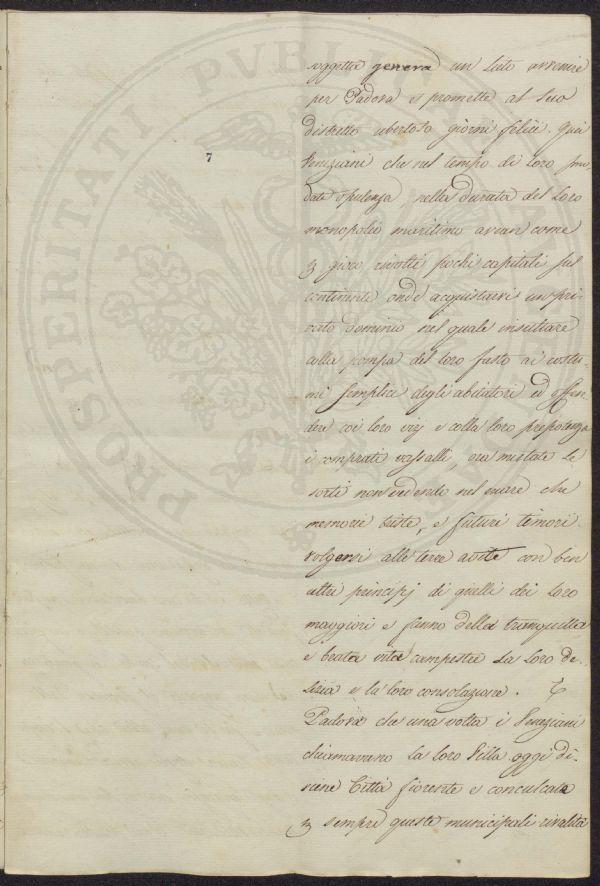 PROSPERITATI PVBLICAE
7
soggetta genera un lieto avvenire
per Padova e promette al suo
distretto ubertoso giorni felici. Quei
Veneziani che nel tempo di loro smo-
data opulenza nella durata del loro
monopolio maritimo avean come
per gioco rivolti pochi capitali sul
continente onde acquistarvi un pri-
vato dominio nel quale insultare
colla pompa del loro fasto ai costu-
mi semplici degli abitatori ed offen-
dere coi loro vizj e colla loro prepotenza
i comprati vassalli, ora mutate le
sorti non vedendo nel mare che
memorie triste, e futuri timori.
volgersi alle terre avite con ben
altri principj di quelli dei loro
maggiori e fanno della tranquilla
e beata vita campestre la loro de-
lizia e la loro consolazione. E
Padova che una volta i Veneziani
chiamavano la loro Villa oggi di-
viene Città fiorente e conculcate
per sempre queste municipali rivalità